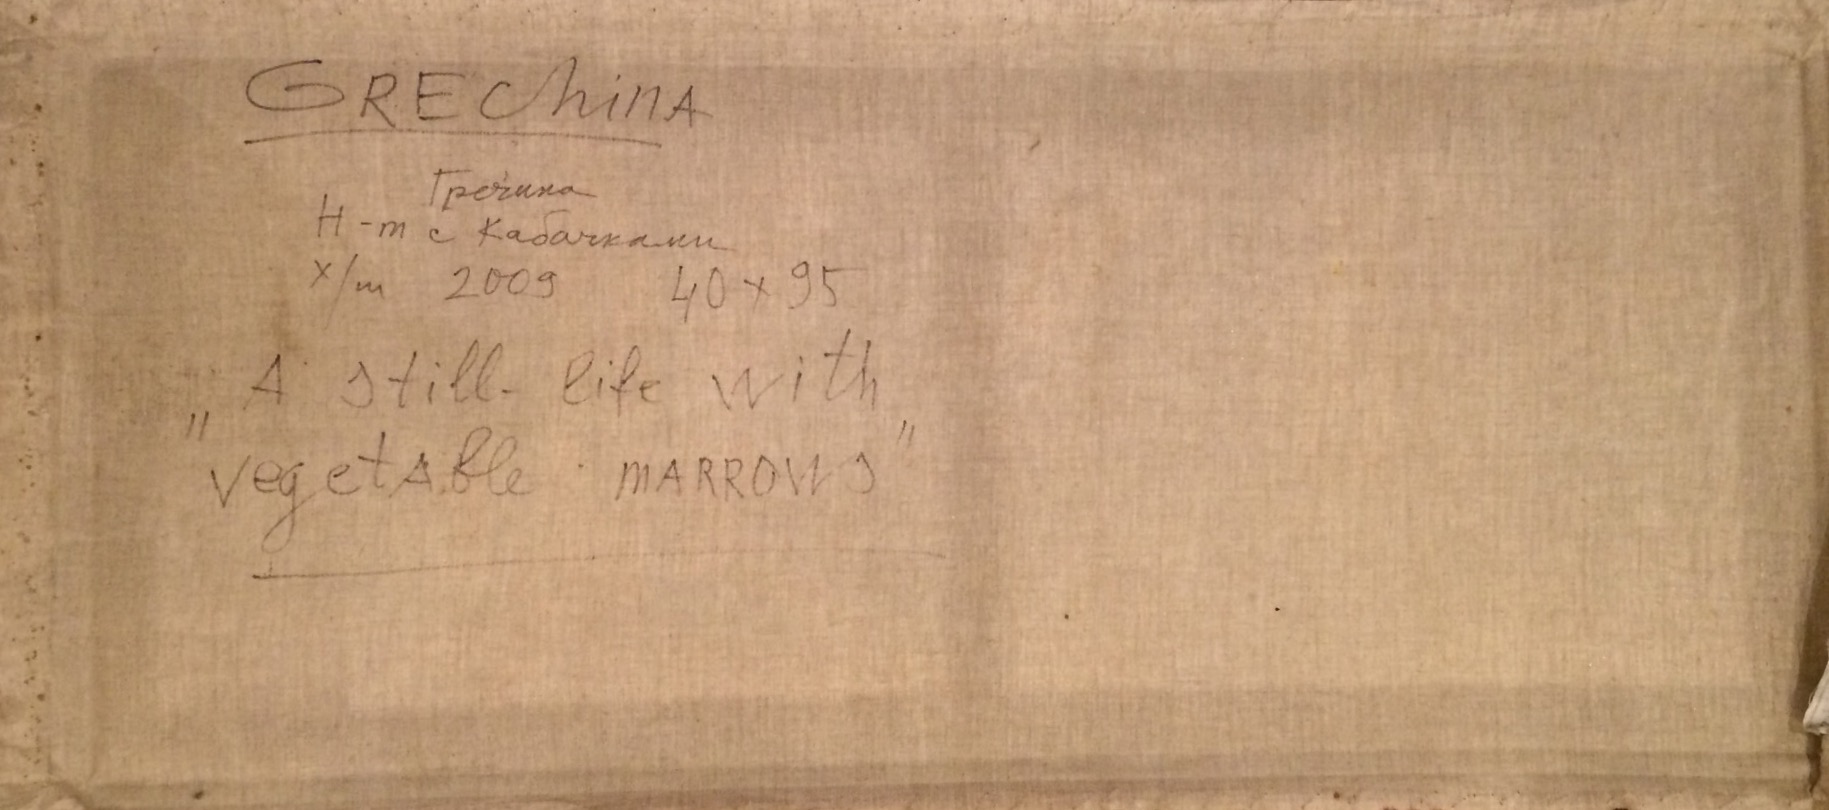 GREChinA
Гречина
Н-т с Кабачками
х/т 2009 40x95
"A still-life with
vegetable marrows"